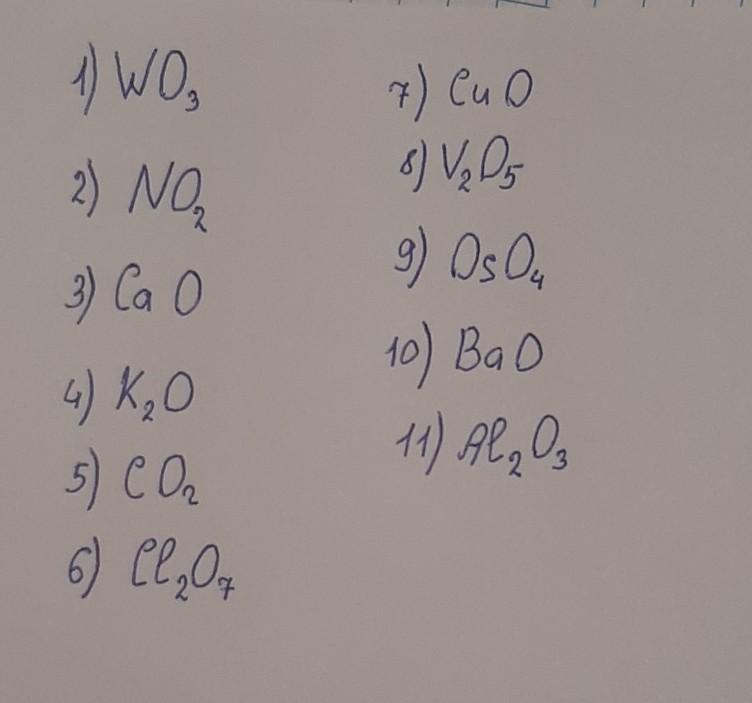 1) WO₃
2) NO₂
3) CaO
4) K₂O
5) CO₂
6) Cl₂O₇
7) CuO
8) V₂O₅
9) OsO₄
10) BaO
11) Al₂O₃